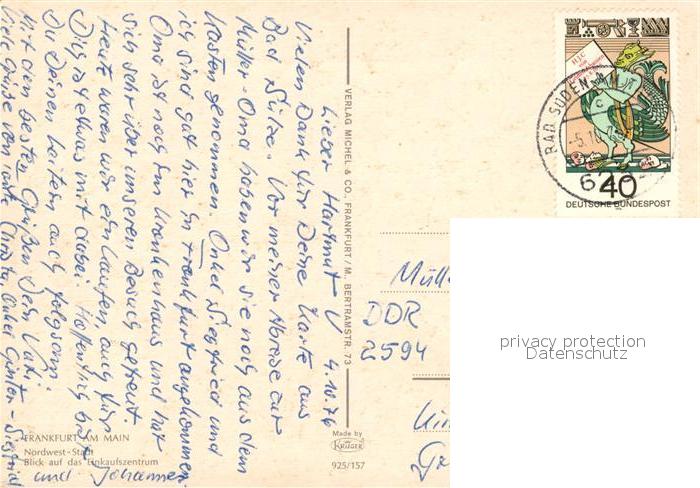 Lieber Hartmut! 4.10.76
Vielen Dank für Deine Karte aus
Bad Sülze. Vor meiner Abreise zur
Müller-Oma haben wir sie noch aus dem
Kasten genommen. Onkel Siegfried und
ich sind gut hier in Frankfurt angekommen.
Oma ist noch im Krankenhaus und hat
sich sehr über unseren Besuch gefreut.
Heute waren wir einkaufen, auch für
Dich ist etwas mit dabei. Hoffentlich bist
Du Deinen Leitern auch folgsam.
Mit den besten Grüßen Dein Vati
Viele Grüße von Tante Christa, Onkel Günter - Siegfried
und Johannes
FRANKFURT AM MAIN
Nordwest-Stadt
Blick auf das Einkaufszentrum
VERLAG MICHEL & CO., FRANKFURT/M., BERTRAMSTR. 73
Made by
KRÜGER
925/157
BAD SODEN
-5.10.
40
DEUTSCHE BUNDESPOST
Müll
DDR
2594
privacy protection
Datenschutz